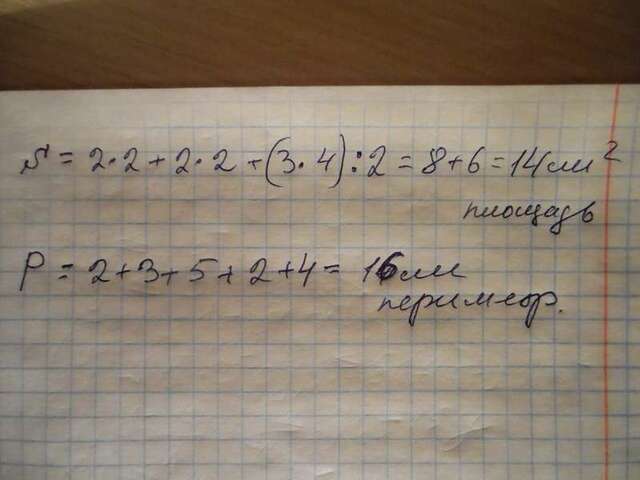 S = 2·2 + 2·2 + (3·4) : 2 = 8 + 6 = 14 см²
площадь
P = 2 + 3 + 5 + 2 + 4 = 16 см
периметр.